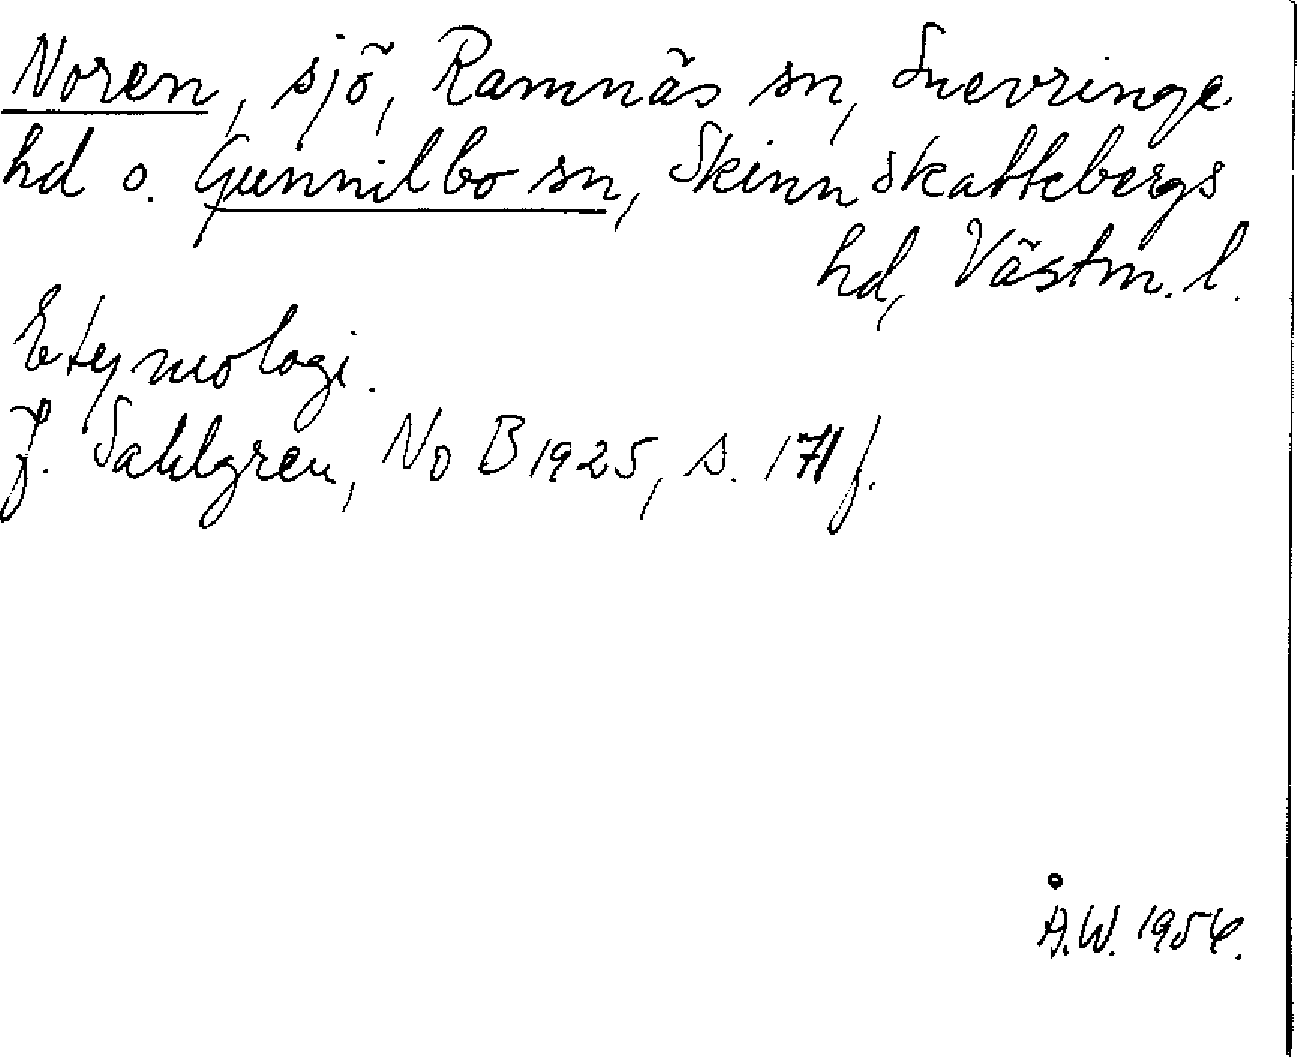 Noren, sjö, Ramnäs sn, Snevringe
hd o. Gunnilbo sn, Skinnskattebergs
hd, Västm. l.
Etymologi.
J. Sahlgren, NoB 1925, s. 171 f.
Å.W. 1954.